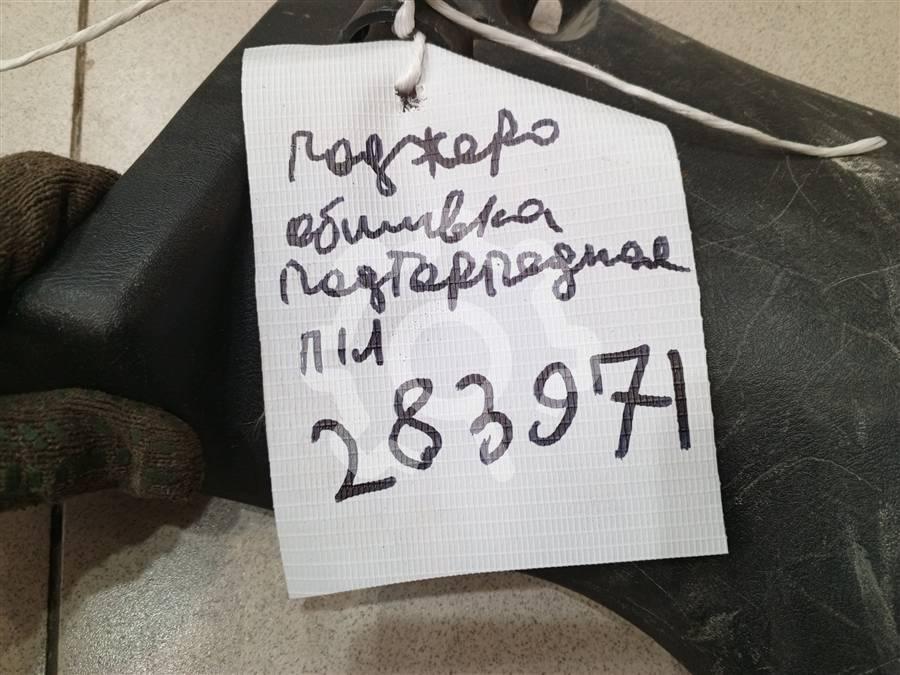 паджеро
обшивка
подторпедная
п1л
283971